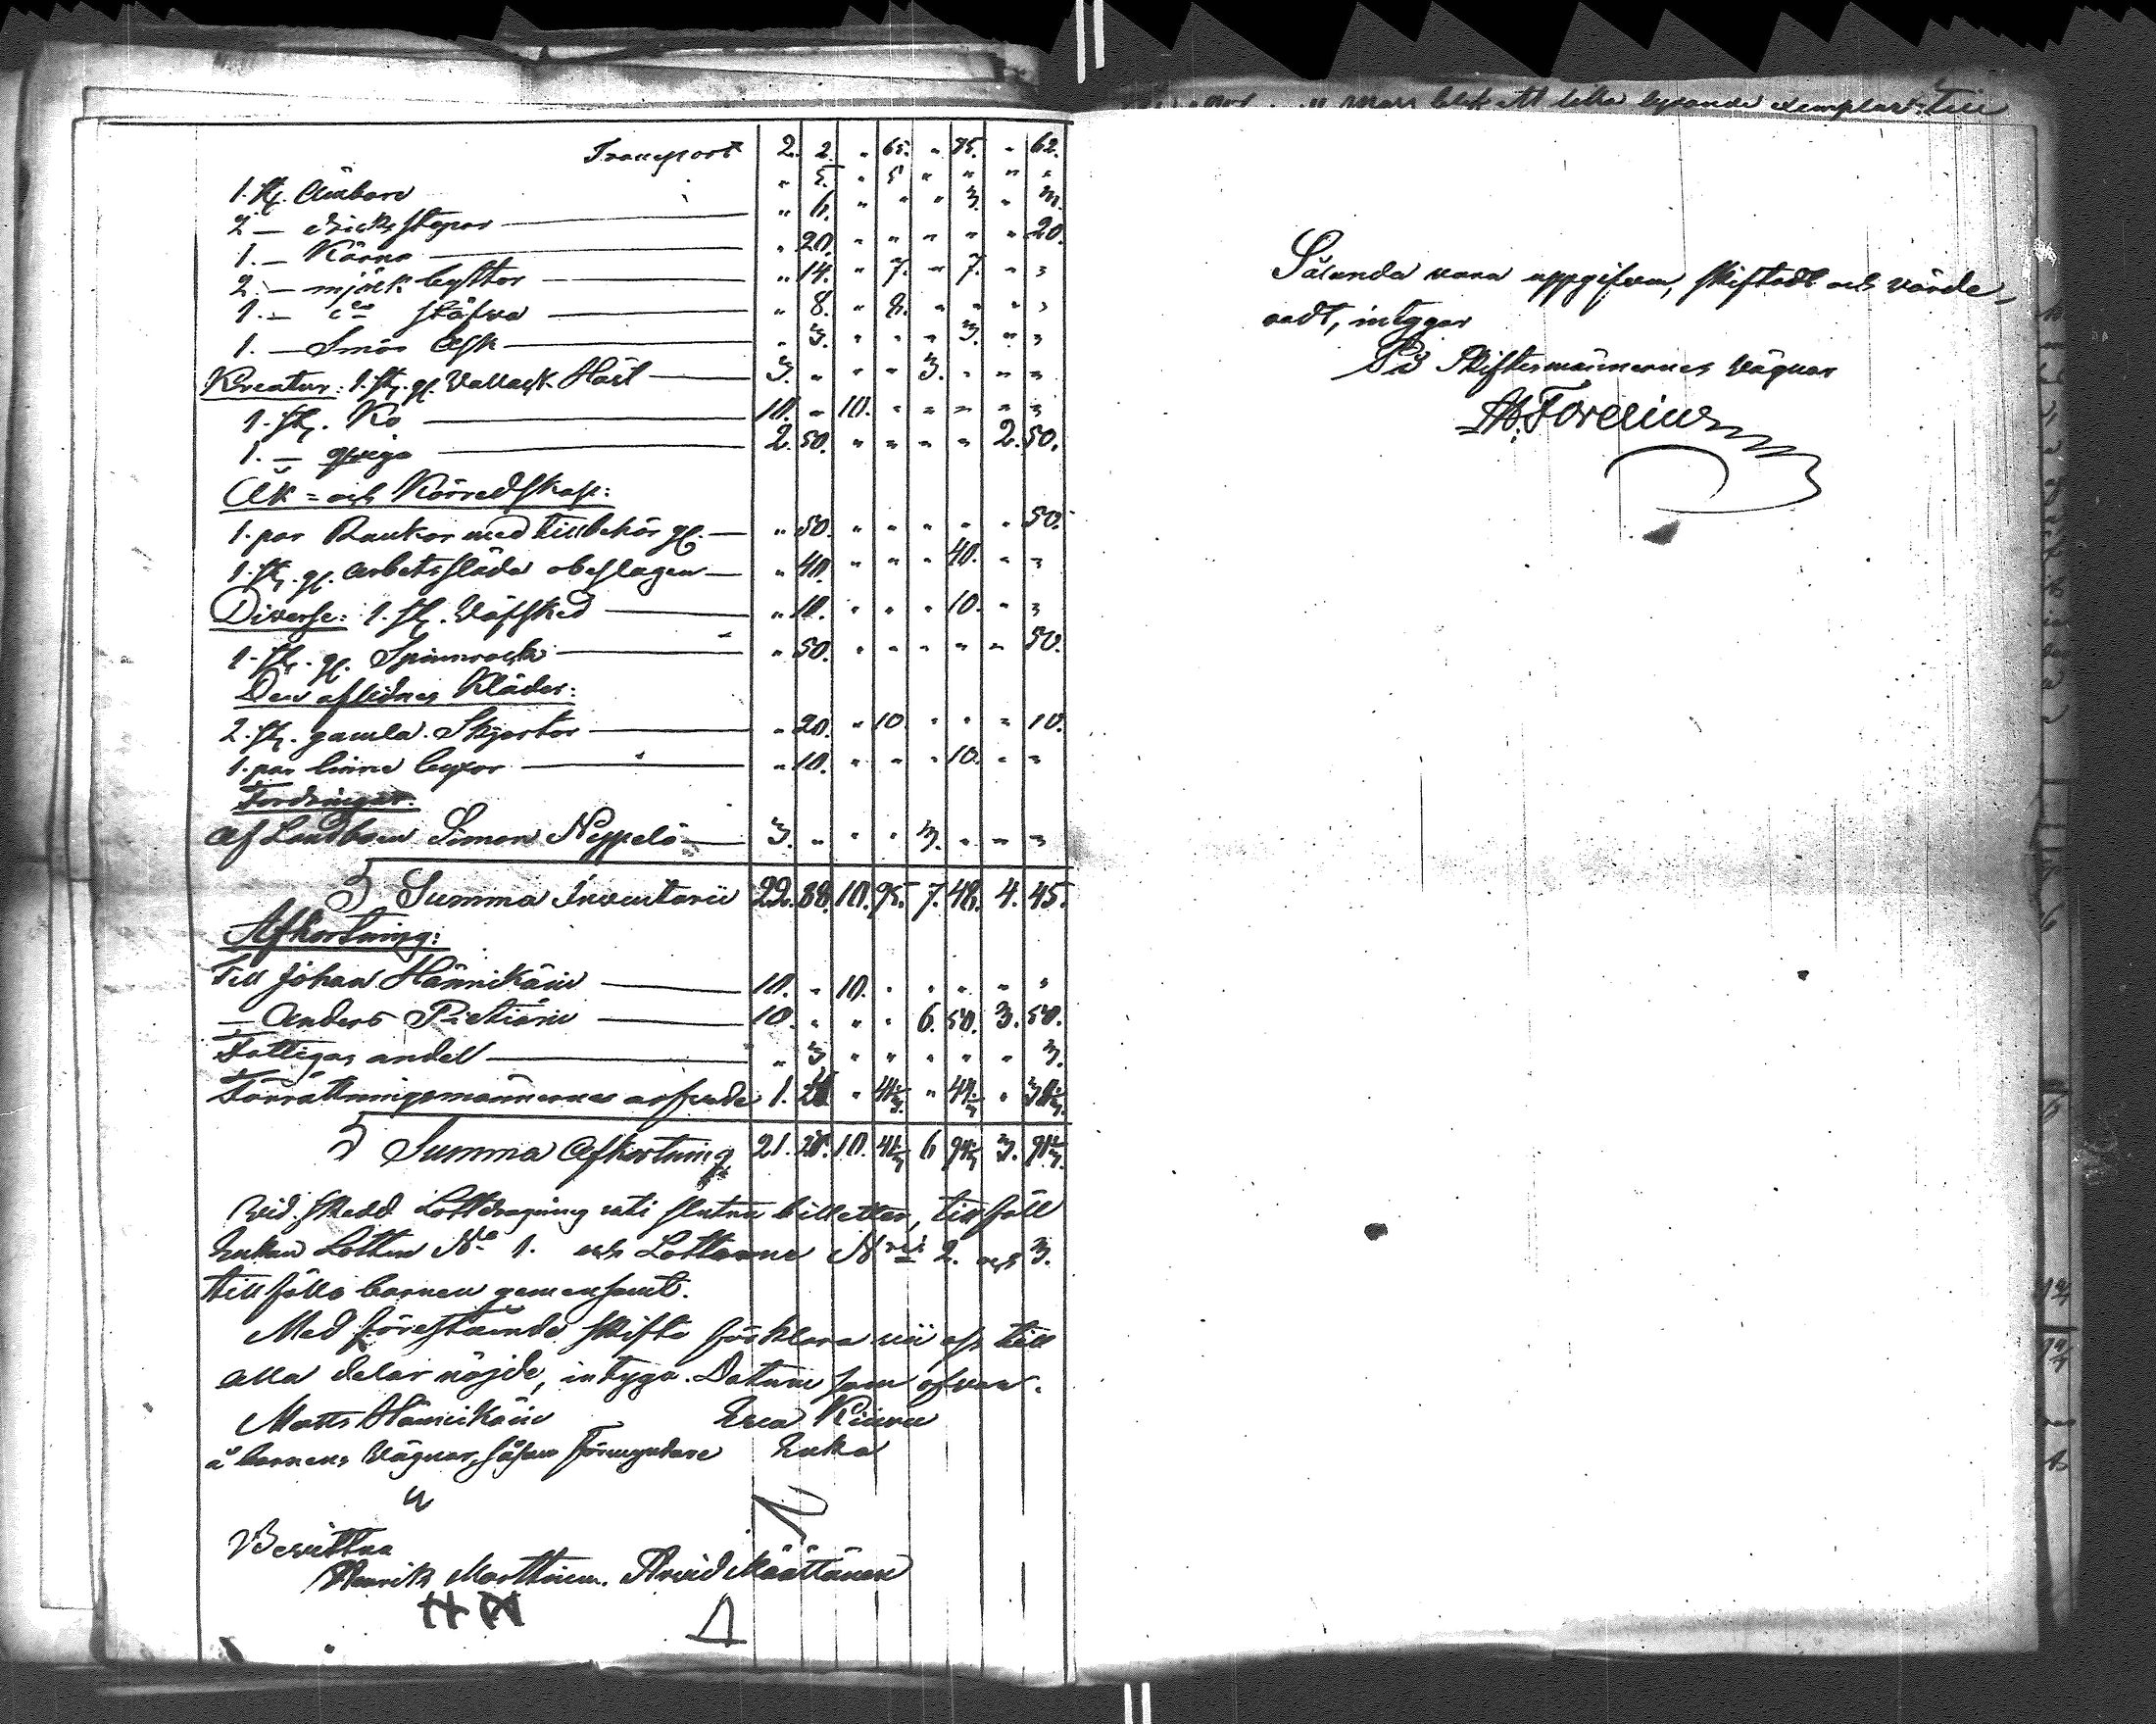 Transport 2. 2. " 65. " 75. " 62.
1. st. Ämbare " 5. " 5 " " " "
2 — dricks stopar " 6. " " " 3. " 3.
1. — Kärna " 20. " " " " " 20.
2. — mjölk byttor " 14. " 7. " 7. " "
1. — do stäfva " 8. " 8. " " " "
1. — Smör Ask " 3. " " " 3. " "
Kreatur: 1. st. gl. Vallack Häst 3. " " " 3. " " "
1. st. Ko 10. " 10. " " " " "
1. — qviga 2. 50. " " " " 2. 50.
Åk- och Körredskap:
1. par Rankor med tillbehör gl. " 50. " " " " " 50.
1. st. gl. arbetssläde obeslagen " 40. " " " 40. " "
Diverse: 1. st. Väfsked " 10. " " " 10. " "
1. st. gl. Spinnrock " 50. " " " " " 50.
Den aflidnes Kläder:
2. st. gamla Skjortor " 20. " 10. " " " 10.
1. par linne byxor " 10. " " " 10. " "
Fordringar.
Af Landboen Simon Neppelö 3. " " " 3. " " "
Summa Inventarii 22. 88. 10. 95. 7. 48. 4. 45.
Afkortning:
Till Johan Hännikäin 10. " 10. " " " " "
— Anders Pietiäin 10. " " " 6. 50. 3. 50.
Fattigas andel " 3 " " " " " 3.
Förrättningsmännernes arfvode 1.
Summa Afkortning 21. 10. 6 3.
Vid skedd Lottdragning uti slutna billetter, tillföll
Enkan Lotten No 1. och Lotterne N 2. och 3.
tillföllo barnen gemensamt.
Med förestående skifte förklara vii oss till
alla delar nöjde, intyga. Datum som ofvan.
Matts Hännikäin Eva Kinnu
å barnens Vägnar, såsom Förmyndare Enka
Bevittna
Henrik Marttinen. Arvid Määttänen
blef ett lika lydande exemplar till
Sålunda vara uppgifven, skiftadt och värde-
radt, intygar
På Skiftesmännernes vägnar
Forelius